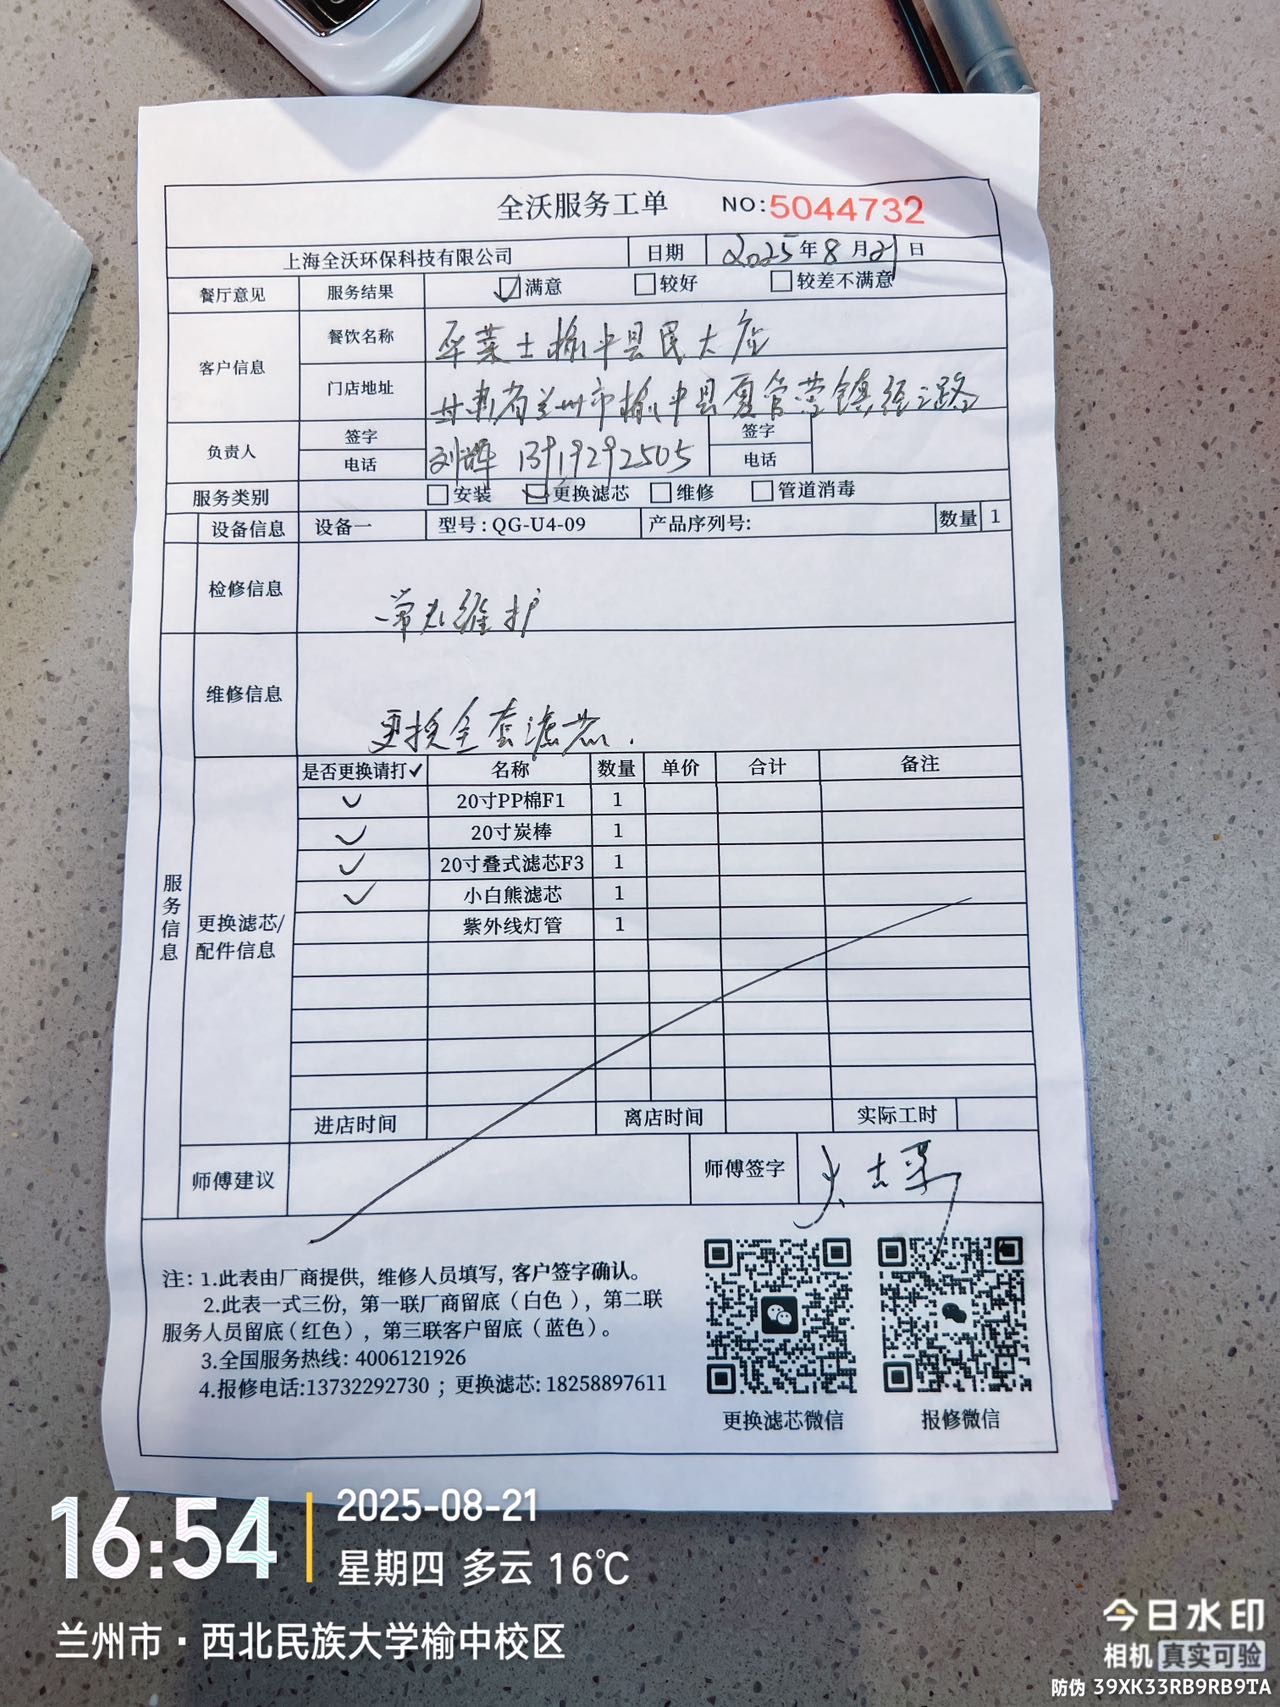 全沃服务工单 NO:5044732
上海全沃环保科技有限公司 日期 2025年8月21日
餐厅意见 服务结果 满意 较好 较差不满意
客户信息 餐饮名称 华莱士榆中县民大店
门店地址 甘肃省兰州市榆中县夏官营镇经之路
负责人 签字 刘辉 签字
电话 13919292505 电话
服务类别 安装 更换滤芯 维修 管道消毒
设备信息 设备一 型号:QG-U4-09 产品序列号: 数量 1
检修信息 常规维护
维修信息 更换全套滤芯.
服务信息
更换滤芯/配件信息
是否更换请打✓ 名称 数量 单价 合计 备注
✓ 20寸PP棉F1 1
✓ 20寸炭棒 1
✓ 20寸叠式滤芯F3 1
✓ 小白熊滤芯 1
紫外线灯管 1
进店时间 离店时间 实际工时
师傅建议 师傅签字
注:1.此表由厂商提供，维修人员填写，客户签字确认。
2.此表一式三份，第一联厂商留底（白色），第二联
服务人员留底（红色），第三联客户留底（蓝色）。
3.全国服务热线: 4006121926
4.报修电话:13732292730 ；更换滤芯: 18258897611
更换滤芯微信 报修微信
16:54 2025-08-21
星期四 多云 16℃
兰州市·西北民族大学榆中校区
今日水印
相机 真实可验
防伪 39XK33RB9RB9TA